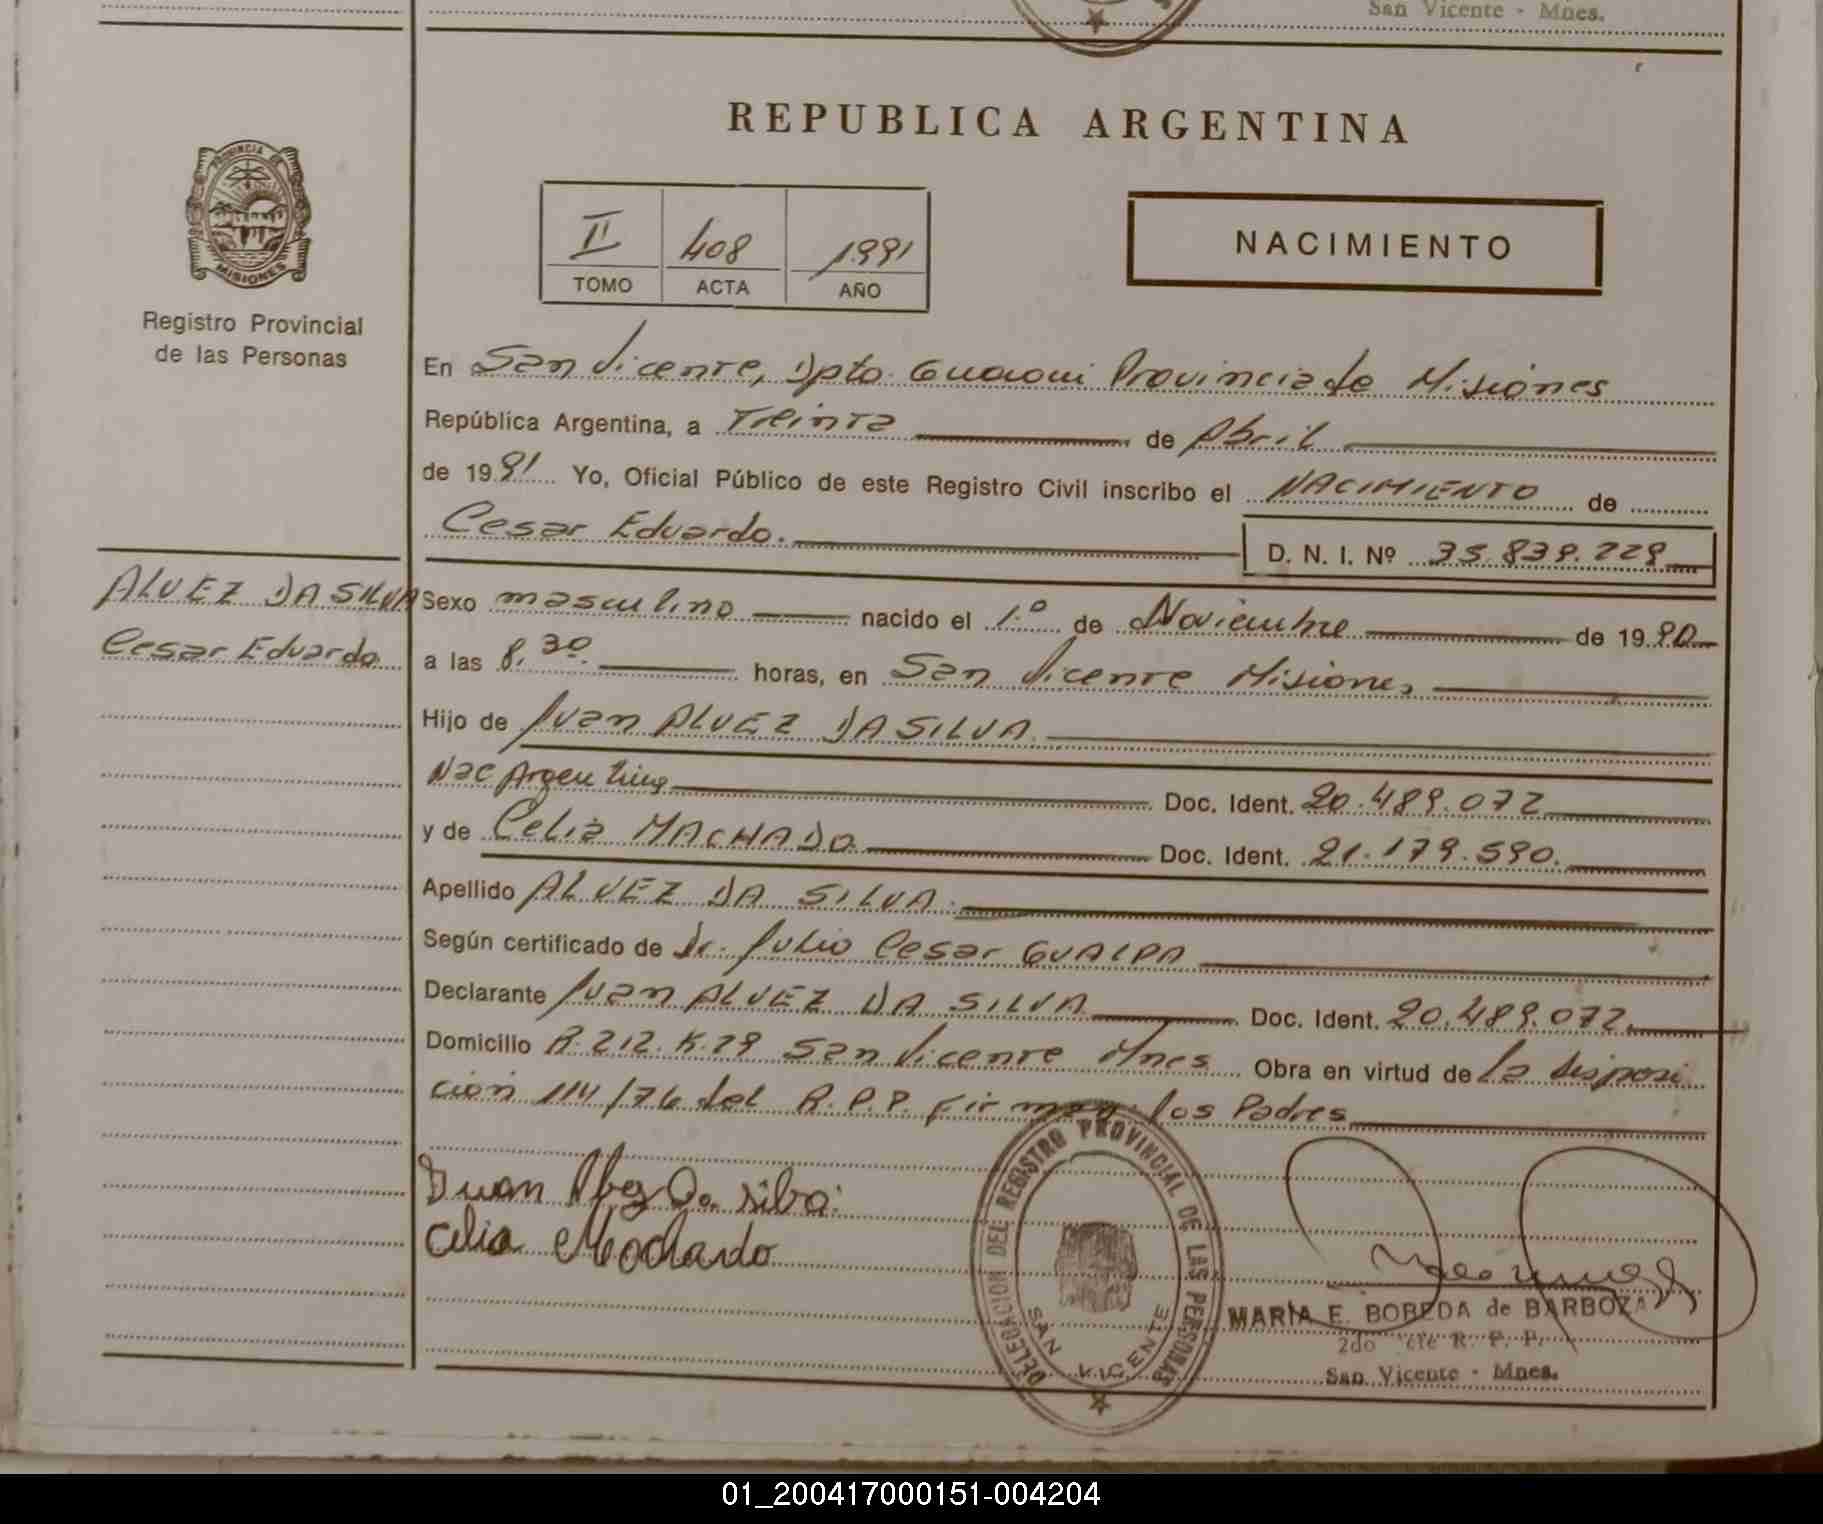 San Vicente - Mnes.
REPUBLICA ARGENTINA
PROVINCIA DE
MISIONES
Registro Provincial
de las Personas
II 408 1991
TOMO ACTA AÑO
NACIMIENTO
En San Vicente, Dpto. Guaraní Provincia de Misiones
República Argentina, a Treinta de Abril
de 1991 Yo, Oficial Público de este Registro Civil inscribo el NACIMIENTO de
Cesar Eduardo. D. N. I. Nº 35.839.229
ALVEZ DA SILVA
Cesar Eduardo
Sexo masculino nacido el 1º de Noviembre de 1990
a las 8.30 horas, en San Vicente Misiones
Hijo de Juan ALVEZ DA SILVA
Nac Argentina Doc. Ident. 20.489.072
y de Celia MACHADO Doc. Ident. 21.179.590.
Apellido ALVEZ DA SILVA.
Según certificado de Dr. Julio Cesar GUALPA
Declarante Juan ALVEZ DA SILVA Doc. Ident. 20.489.072.
Domicilio R.212.K.29 San Vicente Mnes Obra en virtud de la Disposi
ción 114/76 del R.P.P. Firman los Padres
Juan Alvez Da silva
Celia Machado
DELEGACION DEL REGISTRO PROVINCIAL DE LAS PERSONAS
SAN VICENTE
MARIA E. BOBEDA de BARBOZA
2do R. P. P.
San Vicente - Mnes.
01_200417000151-004204